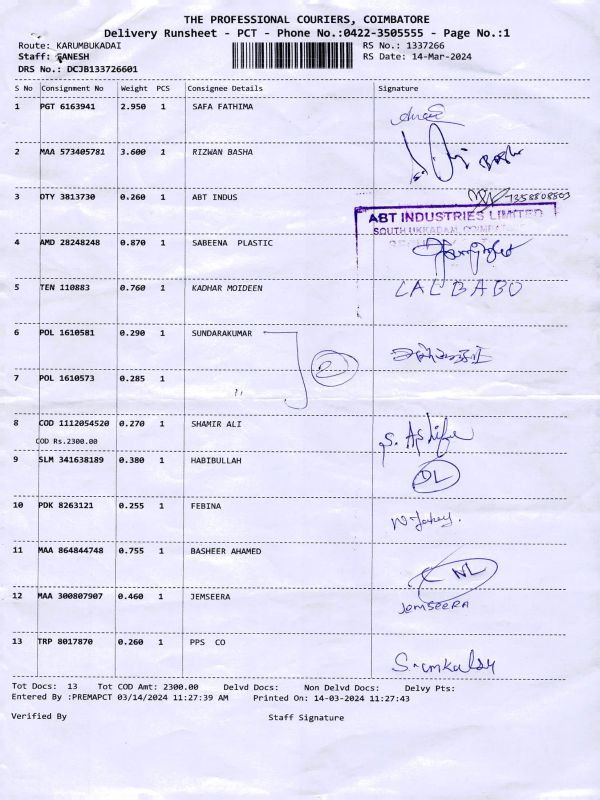 THE PROFESSIONAL COURIERS, COIMBATORE
Delivery Runsheet - PCT - Phone No.:0422-3505555 - Page No.:1
Route: KARUMBUKADAI RS No.: 1337266
Staff: GANESH RS Date: 14-Mar-2024
DRS No.: DCJB133726601
S No Consignment No Weight PCS Consignee Details Signature
1 PGT 6163941 2.950 1 SAFA FATHIMA
2 MAA 573405781 3.600 1 RIZWAN BASHA
3 DTY 3813730 0.260 1 ABT INDUS 7358808803
ABT INDUSTRIES LIMITED
SOUTH UKKADAM, COIMBA
4 AMD 28248248 0.870 1 SABEENA PLASTIC
5 TEN 110883 0.760 1 KADHAR MOIDEEN LALBABO
6 POL 1610581 0.290 1 SUNDARAKUMAR
7 POL 1610573 0.285 1 "
8 COD 1112054520 0.270 1 SHAMIR ALI
COD Rs.2300.00
9 SLM 341638189 0.380 1 HABIBULLAH DL
10 PDK 8263121 0.255 1 FEBINA
11 MAA 864844748 0.755 1 BASHEER AHAMED NL
12 MAA 300807907 0.460 1 JEMSEERA JEMSEERA
13 TRP 8017870 0.260 1 PPS CO
Tot Docs: 13 Tot COD Amt: 2300.00 Delvd Docs: Non Delvd Docs: Delvy Pts:
Entered By :PREMAPCT 03/14/2024 11:27:39 AM Printed On: 14-03-2024 11:27:43
Verified By Staff Signature